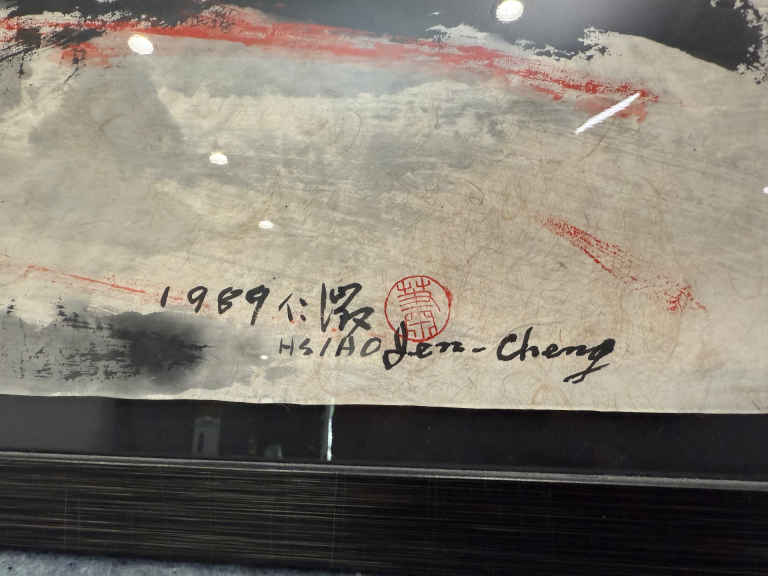 1989 仁徵
HSIAO Jen-Cheng